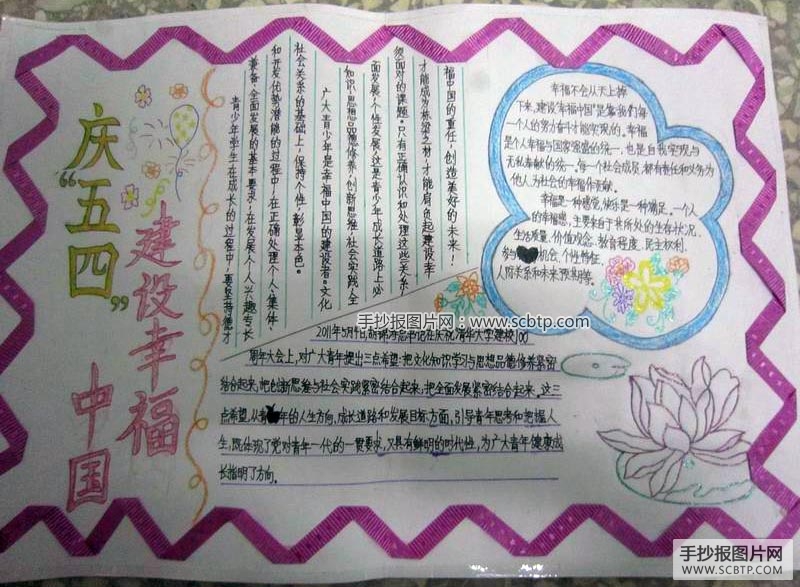 庆“五四”
建设幸福
中国
福中国的重任,创造美好的未来!
才能成为栋梁之材,才能肩负起建设幸
须面对的课题。只有正确认识和处理这些关系,
面发展个性发展,这是青少年成长道路上必
知识,思想品德修养,创新思维,社会实践,全
广大青少年是幸福中国的建设者。文化
社会关系的基础上,保持个性,彰显本色。
和开发优势潜能的过程中,在正确处理个人、集体、
兼备、全面发展的基本要求,在发展个人兴趣专长
青少年学生在成长的过程中,要坚持德才
幸福不会从天上掉
下来,建设“幸福中国”是靠我们每
一个人的努力奋斗才能实现的。幸福
是个人幸福与国家强盛的统一,也是自我实现与
无私奉献的统一。每一个社会成员,都有责任和义务为
他人为社会的幸福作贡献。
幸福是一种感觉,快乐是一种满足。一个人
的幸福感,主要来自于其所处的生存状况、
生活质量、价值观念、教育程度、民主权利、
参与机会、个性特征、
人际关系和未来预期等。
手抄报图片网:www.scbtp.com
2011年5月4日,胡锦涛总书记在庆祝清华大学建校100
周年大会上,对广大青年提出三点希望:把文化知识学习与思想品德修养紧密
结合起来,把创新思维与社会实践紧密结合起来,把全面发展紧密结合起来。这三
点希望,从青年的人生方向,成长道路和发展目标方面,引导青年思考和把握人
生,既体现了党对青年一代的一贯要求,又具有鲜明的时代性,为广大青年健康成
长指明了方向。
手抄报图片网
WWW.SCBTP.COM